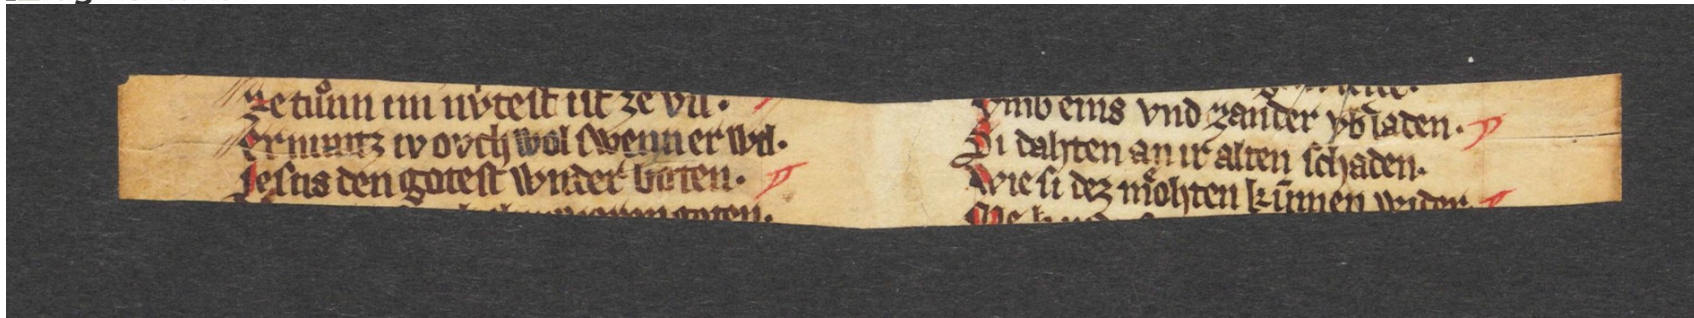 Ze tuͦnn im nvteſt iſt ze vil.
Er nimtz iv ovch wol ſwenn er wil.
Jeſus den goteſt wnder boten.
goten.
vmb eins vnd zander vb laden.
Si dahten an ir alten ſchaden.
Wie ſi dez moͤhten kunnen wider.